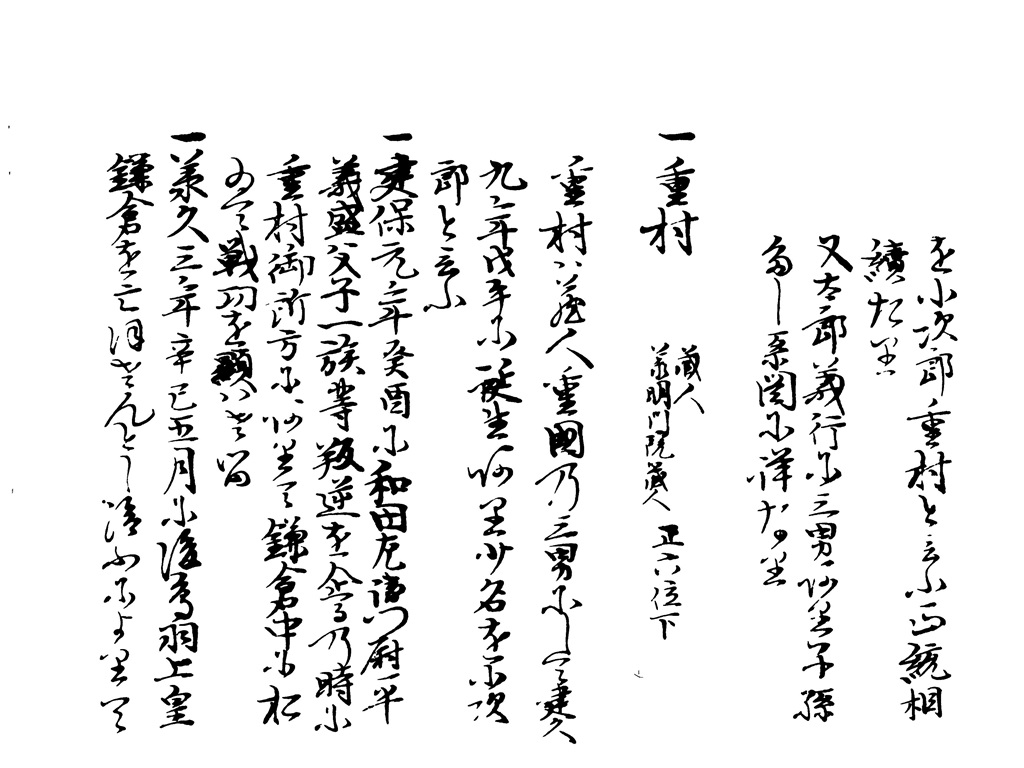 を小次郎重村と云ふ正統相
續なり
又太郎義行に三男あり子孫
多し系図に詳なり
一重村 蔵人 承明門院蔵人 正六位下
重村ハ蔵人重國乃三男にして建久
九年戊午に誕生あり少名を小次
郎と云ふ
一建保元年癸酉に和田左衛門尉平
義盛父子一族等叛逆を企るの時に
重村御所方にありて鎌倉中に於
ゐて戦功を顕ハせる
一承久三年辛巳五月に後鳥羽上皇
鎌倉を亡ほさんとし給ふによりて